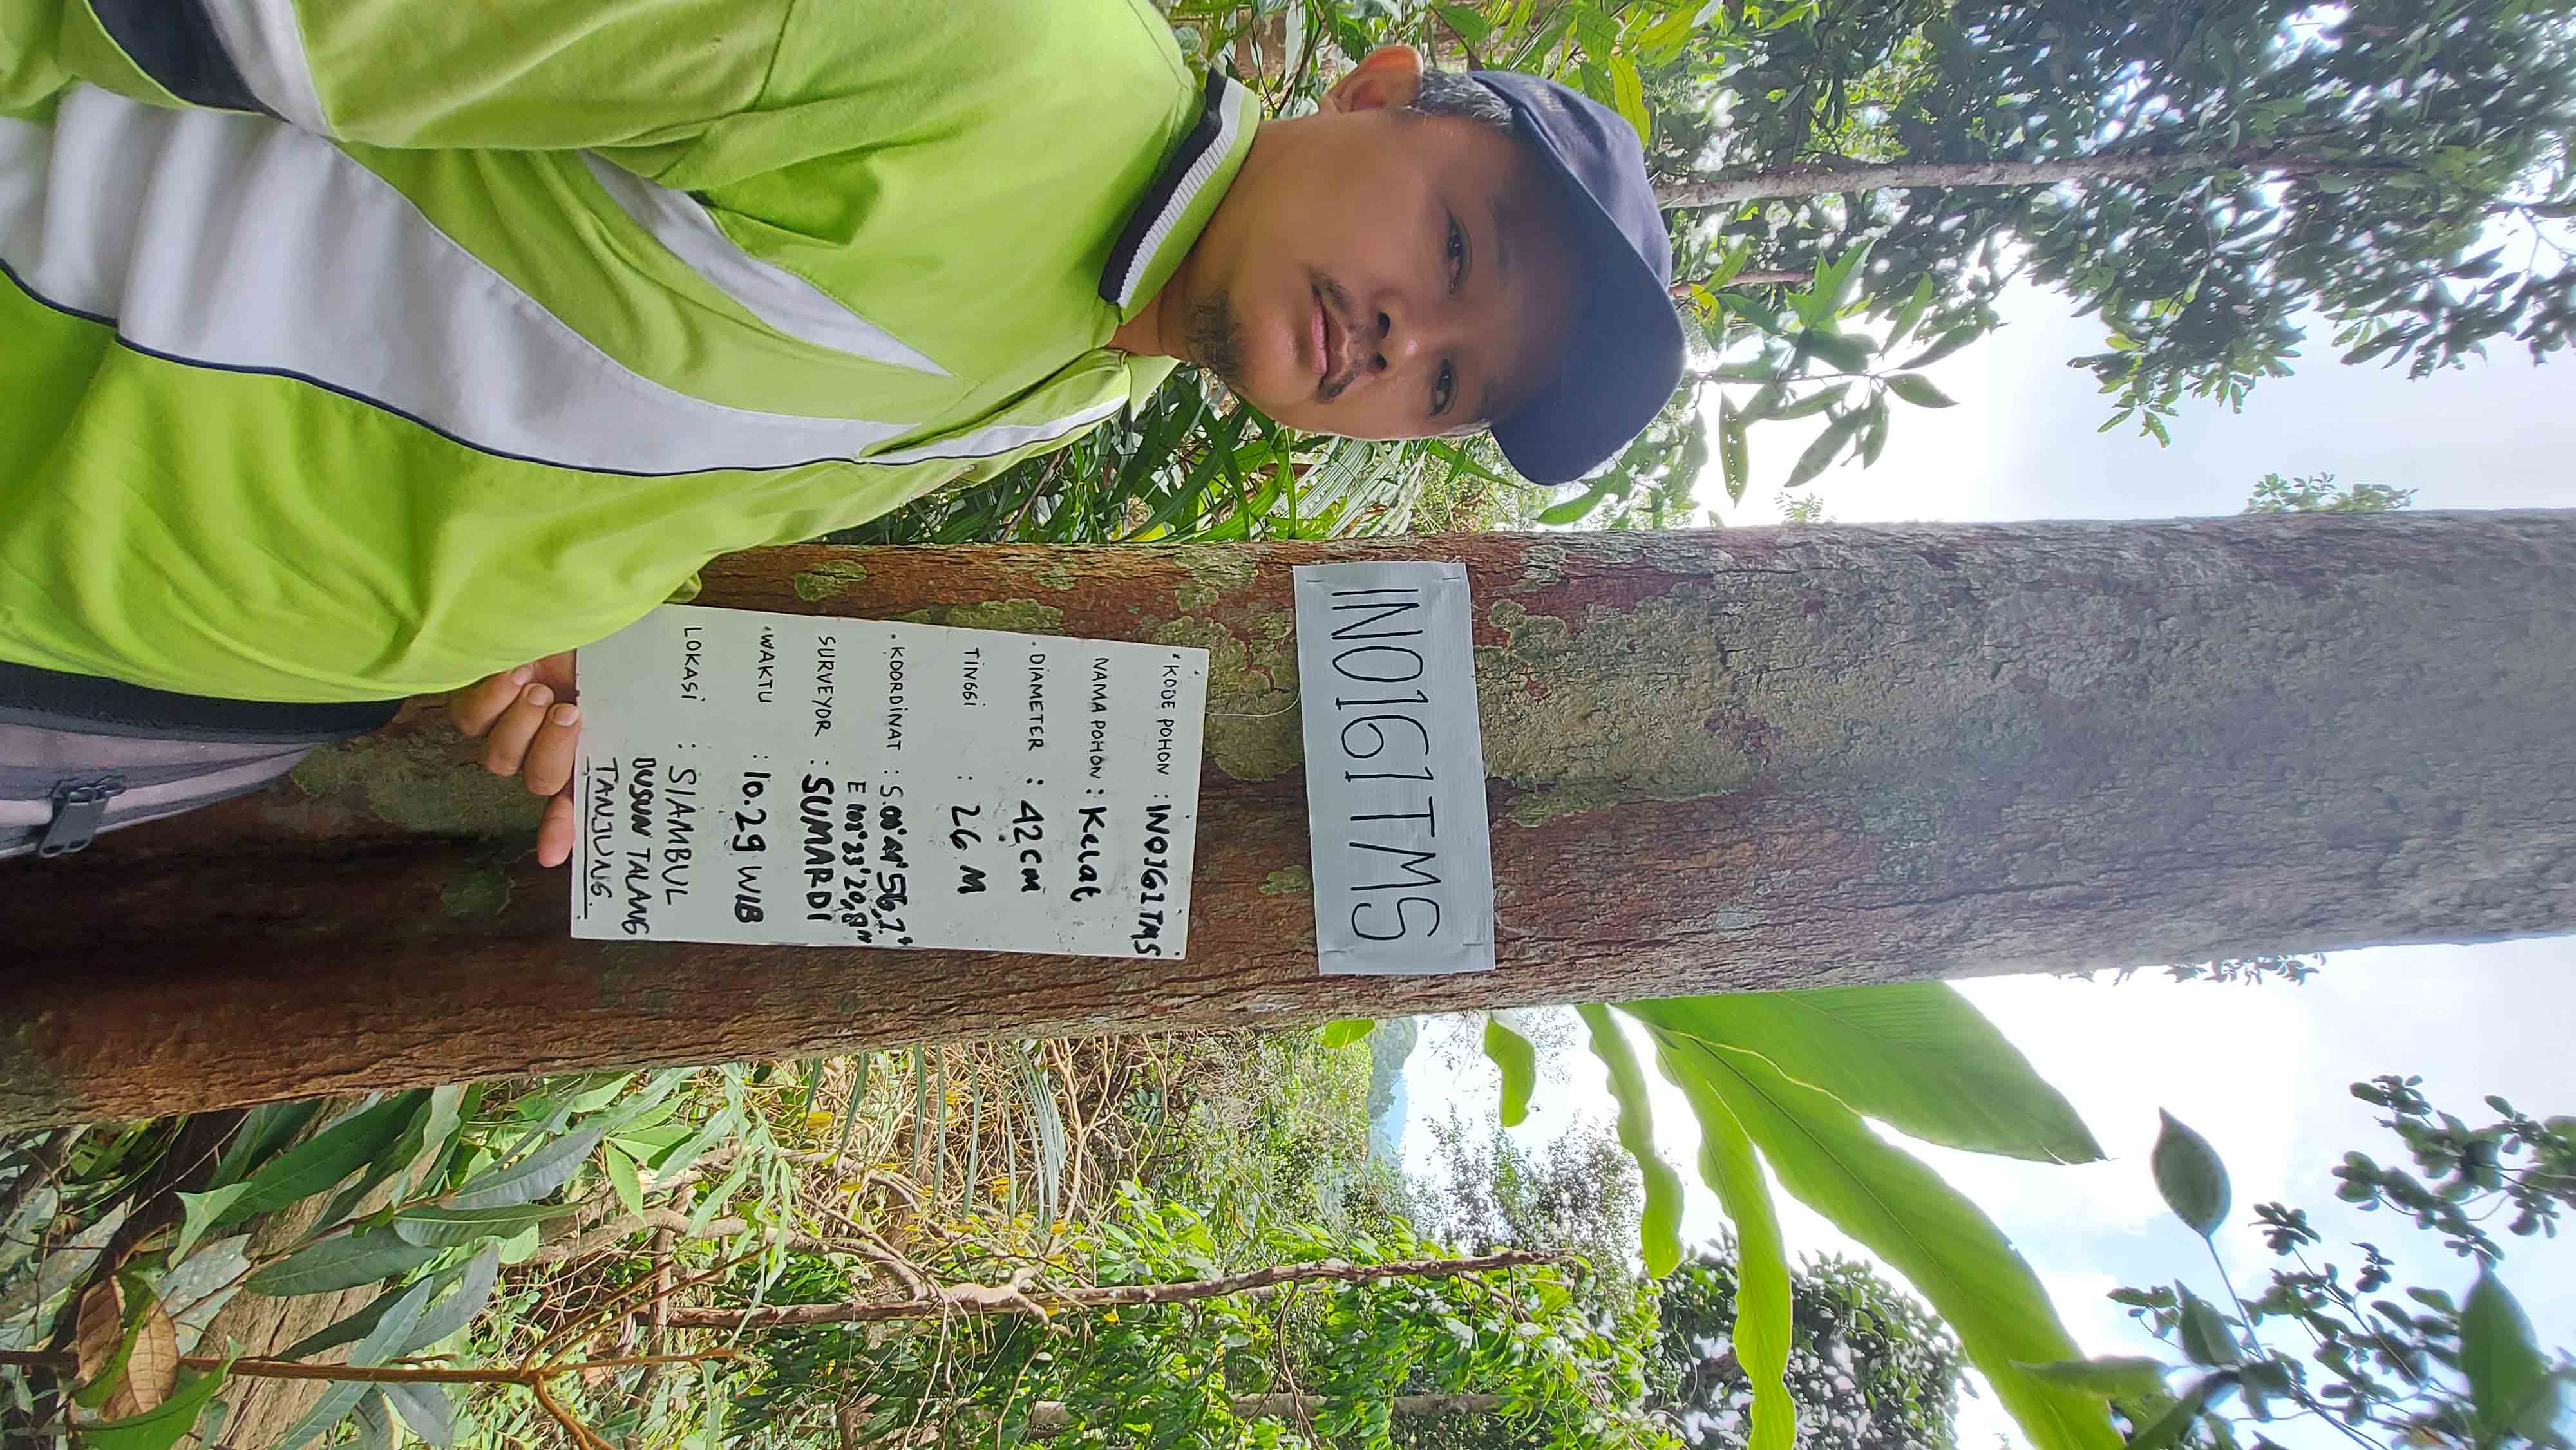 IN0161TMS
KODE POHON : IN0161TMS
NAMA POHON : Kelat
DIAMETER : 42 cm
TINGGI : 26 M
KOORDINAT :
SURVEYOR : SUMARDI
WAKTU : 10.29 WIB
LOKASI : SIAMBUL
DUSUN TALANG
TANJUNG